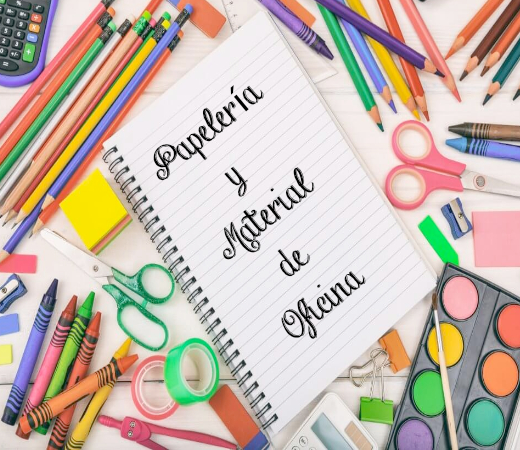 Papelería
y
Material
de
Oficina